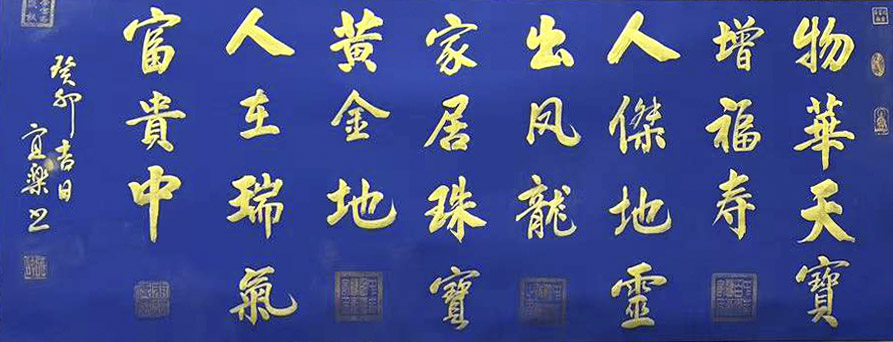 物華天寶
增福寿
人傑地靈
出凤龍
家居珠寶
黄金地
人在瑞氣
富貴中
癸卯吉日
宜樂书